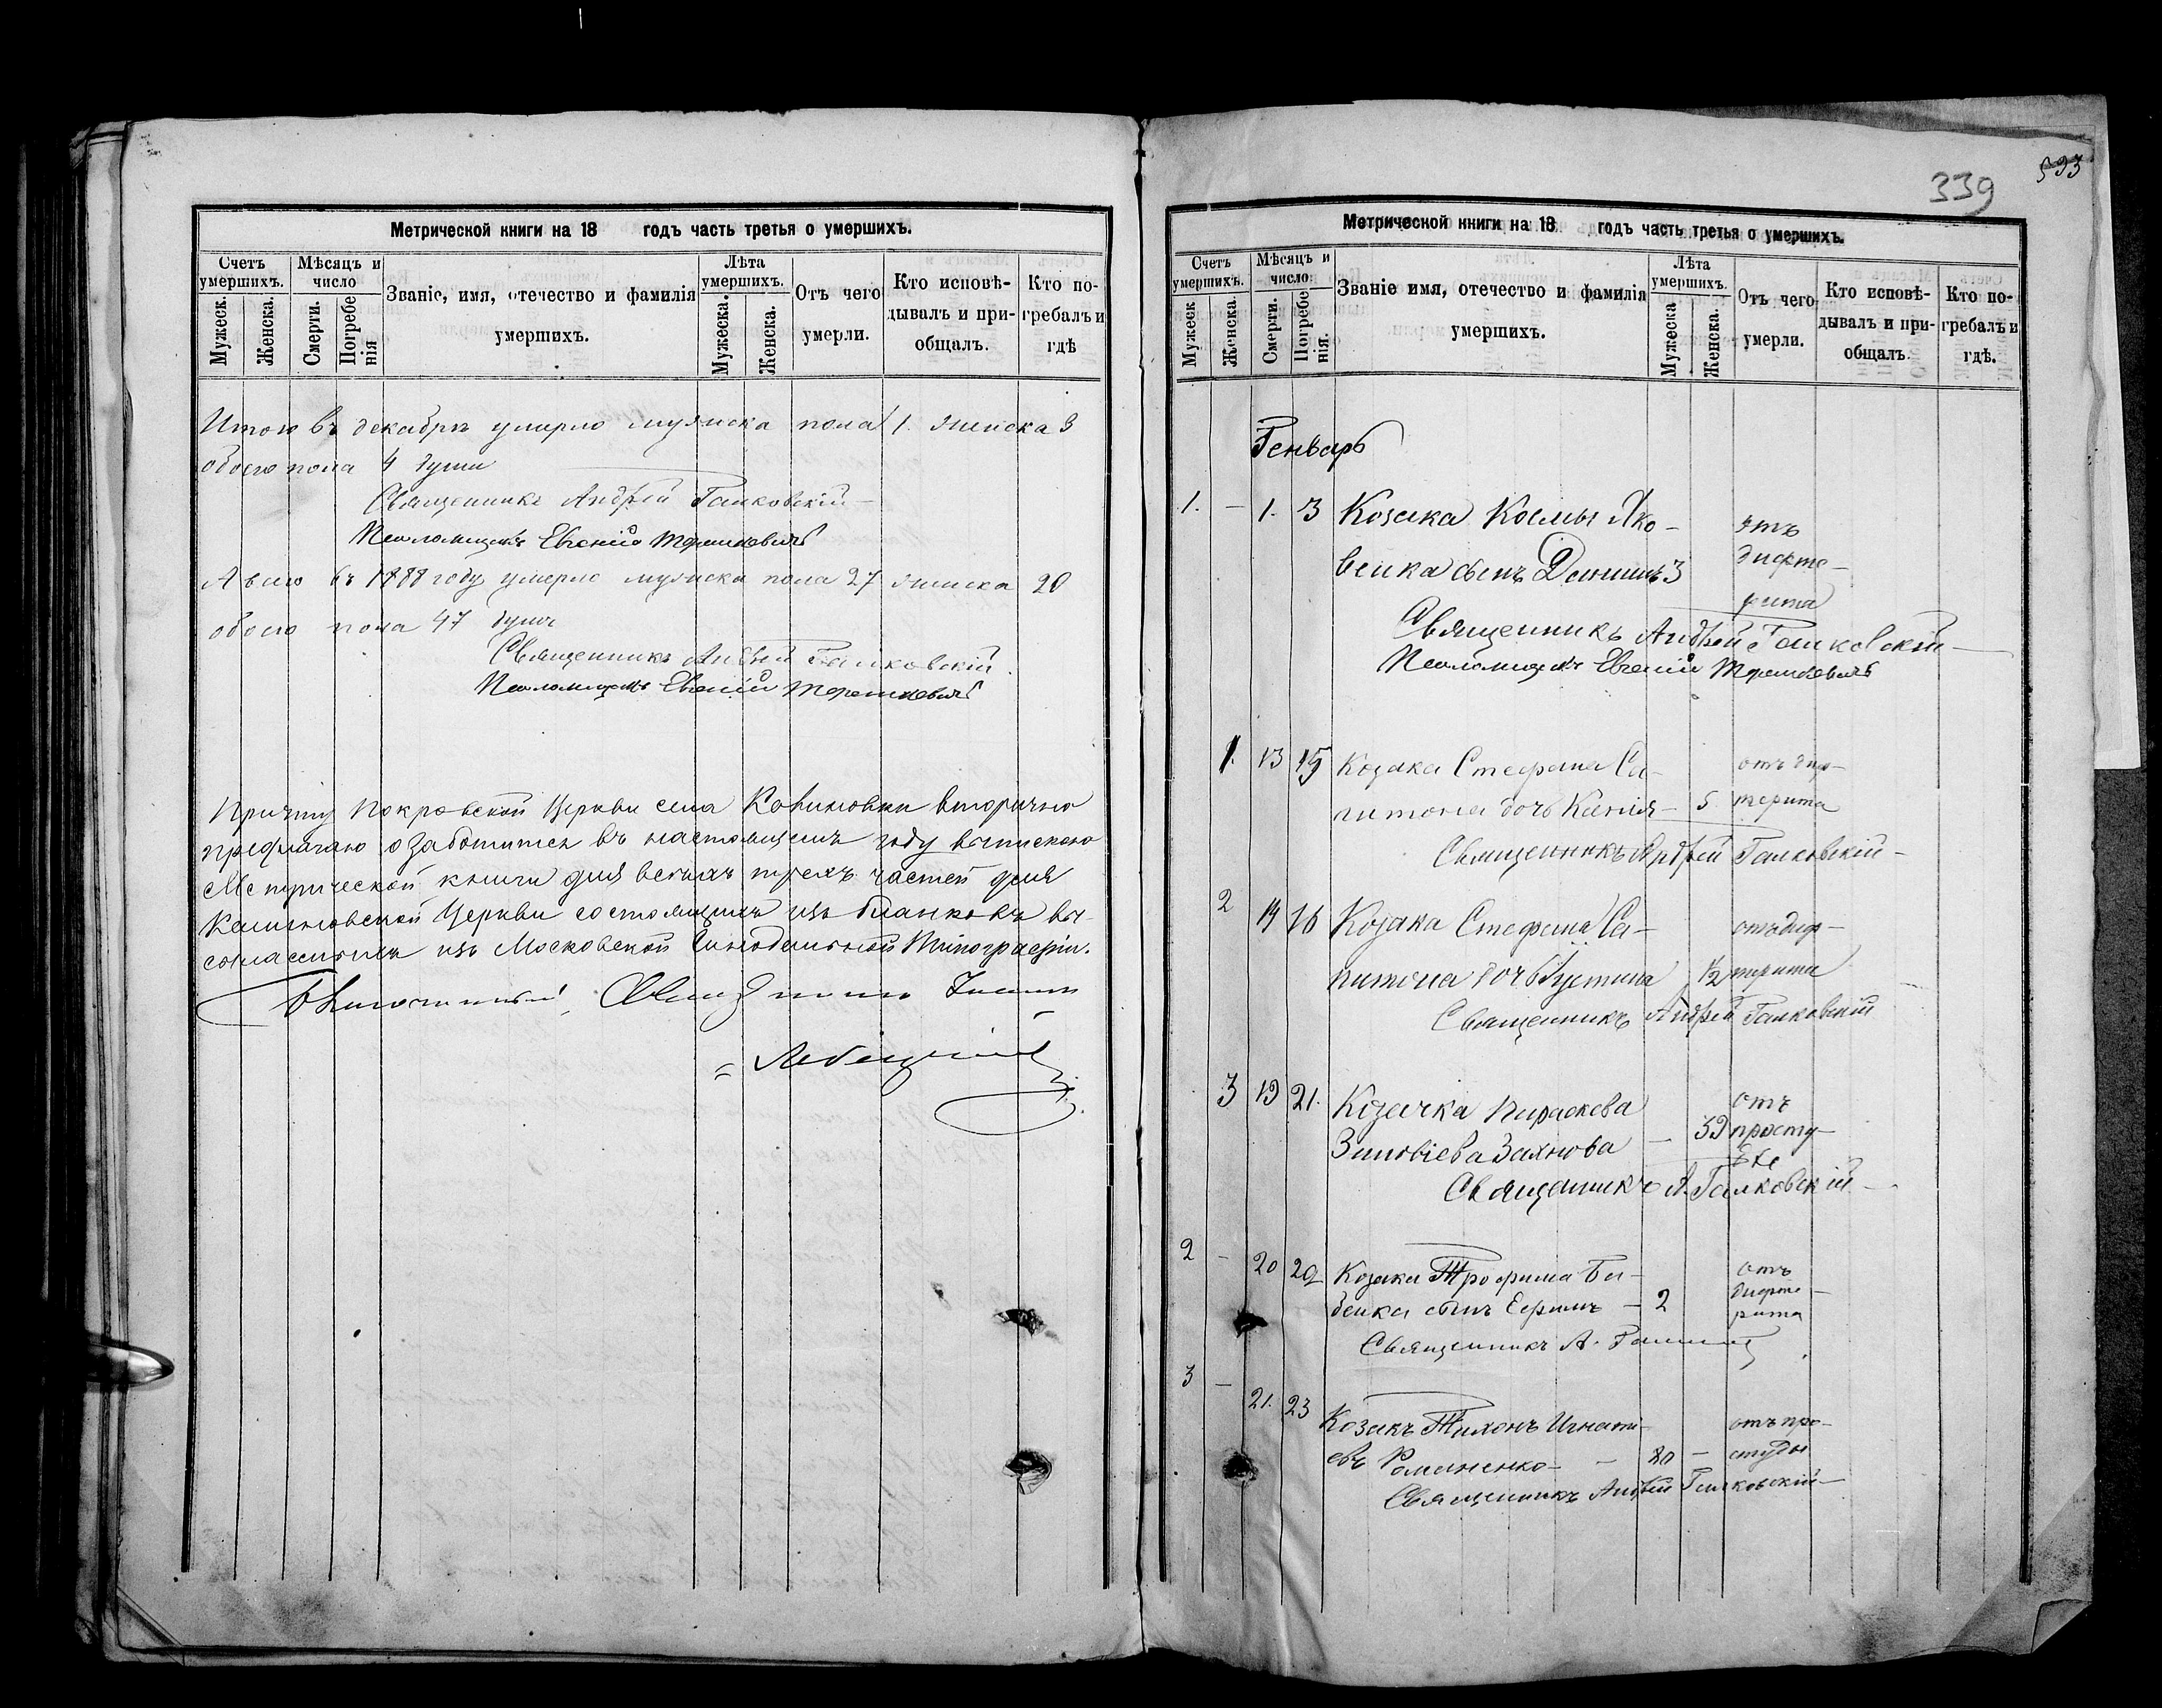 Метрической книги на 18 годъ часть третья о умершихъ.
Счетъ умершихъ.
Мужеск.
Женска.
Мѣсяцъ и число
Смерти.
Погребенія
Званіе, имя, отечество и фамилія умершихъ.
Лѣта умершихъ.
Мужеска.
Женска.
Отъ чего умерли.
Кто исповѣдывалъ и приобщалъ.
Кто погребалъ и гдѣ
Итого въ декабрѣ умерло мужеска пола 1. женска 3
обоего пола 4 души
Священникъ Андрей Галковскій
Псаломщикъ Евгеній
А всего въ 1888 году умерло мужеска пола 27 женска 20
обоего пола 47 душъ
Священникъ Андрей Галковскій
Псаломщикъ Евгеній
Причту Покровской Церкви села вторично
предлагаю озаботится въ настоящемъ году выпискою
Метрической книги для всѣхъ трехъ частей для
Церкви состоящихъ изъ бланковъ вы-
сылаемыхъ изъ Московской Синодальной Типографіи.
Благочинный, Священникъ
339
593
Метрической книги на 18 годъ часть третья о умершихъ.
Счетъ умершихъ.
Мужеск
Женска.
Мѣсяцъ и число
Смерти.
Погребенія.
Званіе имя, отечество и фамилія умершихъ.
Лѣта умершихъ.
Мужеска
Женска.
Отъ чего умерли.
Кто исповѣдывалъ и приобщалъ.
Кто погребалъ и гдѣ.
Генварь
1. – 1. 3 Козака Космы Яко- отъ
венка сынъ 3 дифте-
рита
Священникъ Андрей Галковскій
Псаломщикъ Евгеній
1. 13 15 Козака Стефана Са- отъ диф-
питона дочь Ксенія – 5 терита
Священникъ Андрей Галковскій
2 14 16 Козака Стефана Са- отъ диф-
питона дочь Іустина 1/2 терита
Священникъ Андрей Галковскій
3 19 21. Козачка Параскева отъ
Зиновіева – 39 просту-
ды
Священникъ А. Галковскій
2 – 20 22 Козака Трофима Ба- отъ
бенка сынъ Ефимъ – 2 дифте-
рита
Священникъ А.
3 – 21. 23 Козакъ Тихонъ Игнать- отъ про-
евъ Романенко – 80 – студы
Священникъ Андрей Галковскій